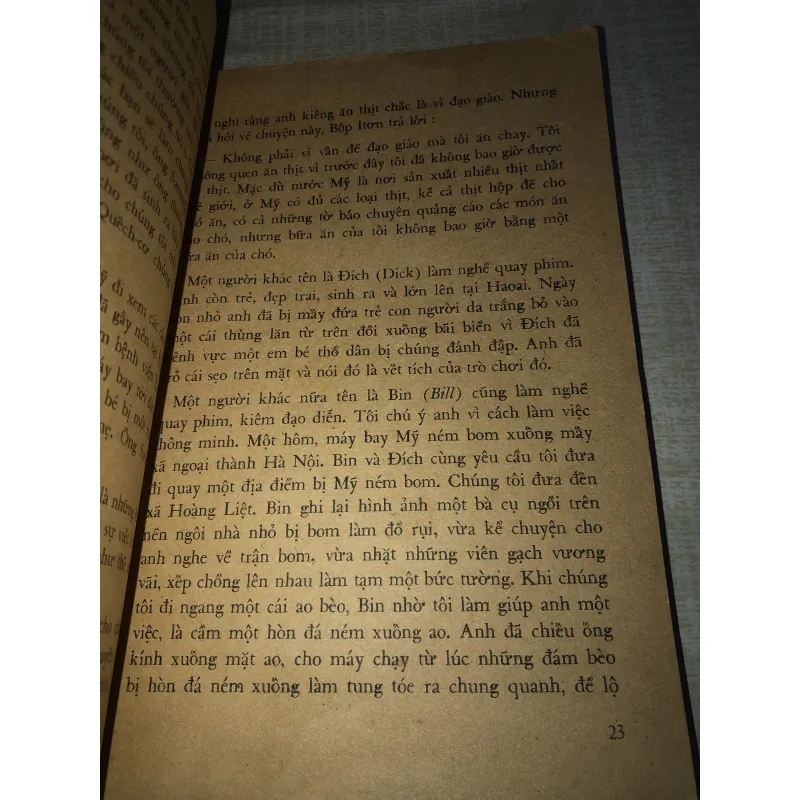 một người
chúng tôi thường
chiều chúng
bạn sẽ làm
chúng tôi, ông
như ông
đã sinh ra
cho chúng tôi
Quếch-cơ chúng
đi xem các
đã gây nên
bệnh viện
máy bay tới
bé bị
mẹ. Ông
là những
sự việc
như thế
nghĩ rằng anh kiêng ăn thịt chắc là vì đạo giáo. Nhưng
hỏi về chuyện này, Bốp Itơn trả lời :
— Không phải vì vấn để đạo giáo mà tôi ăn chay. Tôi
quen ăn thịt vì trước đây tôi đã không bao giờ được
thịt. Mặc dù nước Mỹ là nơi sản xuất nhiều thịt nhất
giới, ở Mỹ có đủ các loại thịt, kể cả thịt hộp để cho
ăn, có cả những tờ báo chuyên quảng cáo các món ăn
chó, nhưng bữa ăn của tôi không bao giờ bằng một
ăn của chó.
Một người khác tên là Đích (Dick) làm nghề quay phim.
còn trẻ, đẹp trai, sinh ra và lớn lên tại Haoai. Ngày
nhỏ anh đã bị mấy đứa trẻ con người da trắng bỏ vào
một cái thùng lăn từ trên đồi xuống bãi biển vì Đích đã
bênh vực một em bé thổ dân bị chúng đánh đập. Anh đã
trỏ cái sẹo trên mặt và nói đó là vết tích của trò chơi đó.
Một người khác nữa tên là Bin (Bill) cũng làm nghề
quay phim, kiêm đạo diễn. Tôi chú ý anh vì cách làm việc
thông minh. Một hôm, máy bay Mỹ ném bom xuống mấy
xã ngoại thành Hà Nội. Bin và Đích cùng yêu cầu tôi đưa
đi quay một địa điểm bị Mỹ ném bom. Chúng tôi đưa đến
xã Hoàng Liệt. Bin ghi lại hình ảnh một bà cụ ngồi trên
nền ngôi nhà nhỏ bị bom làm đổ rụi, vừa kể chuyện cho
anh nghe về trận bom, vừa nhặt những viên gạch vương
vãi, xếp chồng lên nhau làm tạm một bức tường. Khi chúng
tôi đi ngang một cái ao bèo, Bin nhờ tôi làm giúp anh một
việc, là cầm một hòn đá ném xuống ao. Anh đã chiếu ống
kính xuống mặt ao, cho máy chạy từ lúc những đám bèo
bị hòn đá ném xuống làm tung tóe ra chung quanh, để lộ
23